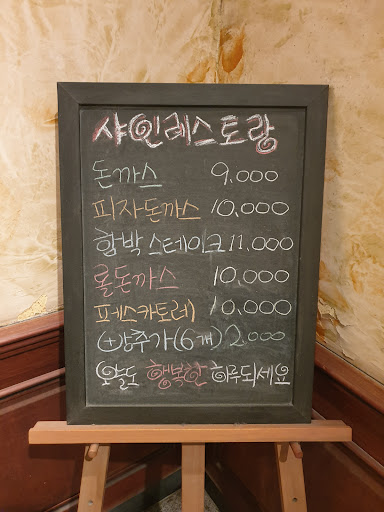 샤인레스토랑
돈까스 9,000
피자돈까스 10,000
함박스테이크 11,000
롤돈까스 10,000
페스카토레) 10,000
+왕추가(6개) 2,000
오늘도 행복한 하루되세요